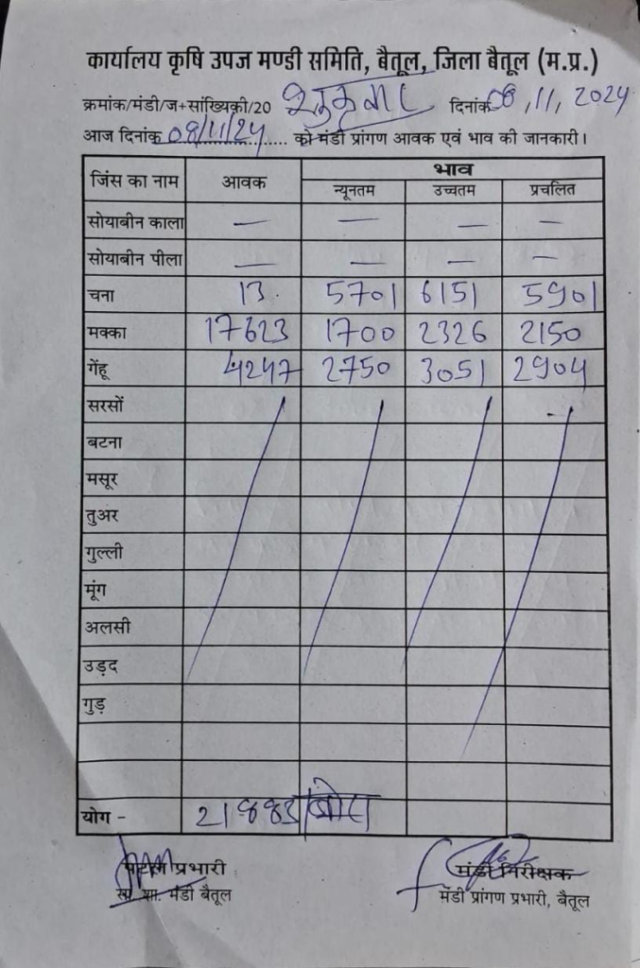 कार्यालय कृषि उपज मण्डी समिति, बैतूल, जिला बैतूल (म.प्र.)
क्रमांक/मंडी/ज+सांख्यिकी/20 शुक्रवार दिनांक 08,11,2024
आज दिनांक 08/11/24 ...... को मंडी प्रांगण आवक एवं भाव की जानकारी।
जिंस का नाम आवक भाव
न्यूनतम उच्चतम प्रचलित
सोयाबीन काला — — — —
सोयाबीन पीला — — — —
चना 13. 5701 6151 5901
मक्का 17623 1700 2326 2150
गेंहू 4247 2750 3051 2904
सरसों
बटना
मसूर
तुअर
गुल्ली
मूंग
अलसी
उड़द
गुड़
योग - 21883 बोरा
प्रभारी मंडी निरीक्षक
मंडी बैतूल मंडी प्रांगण प्रभारी, बैतूल